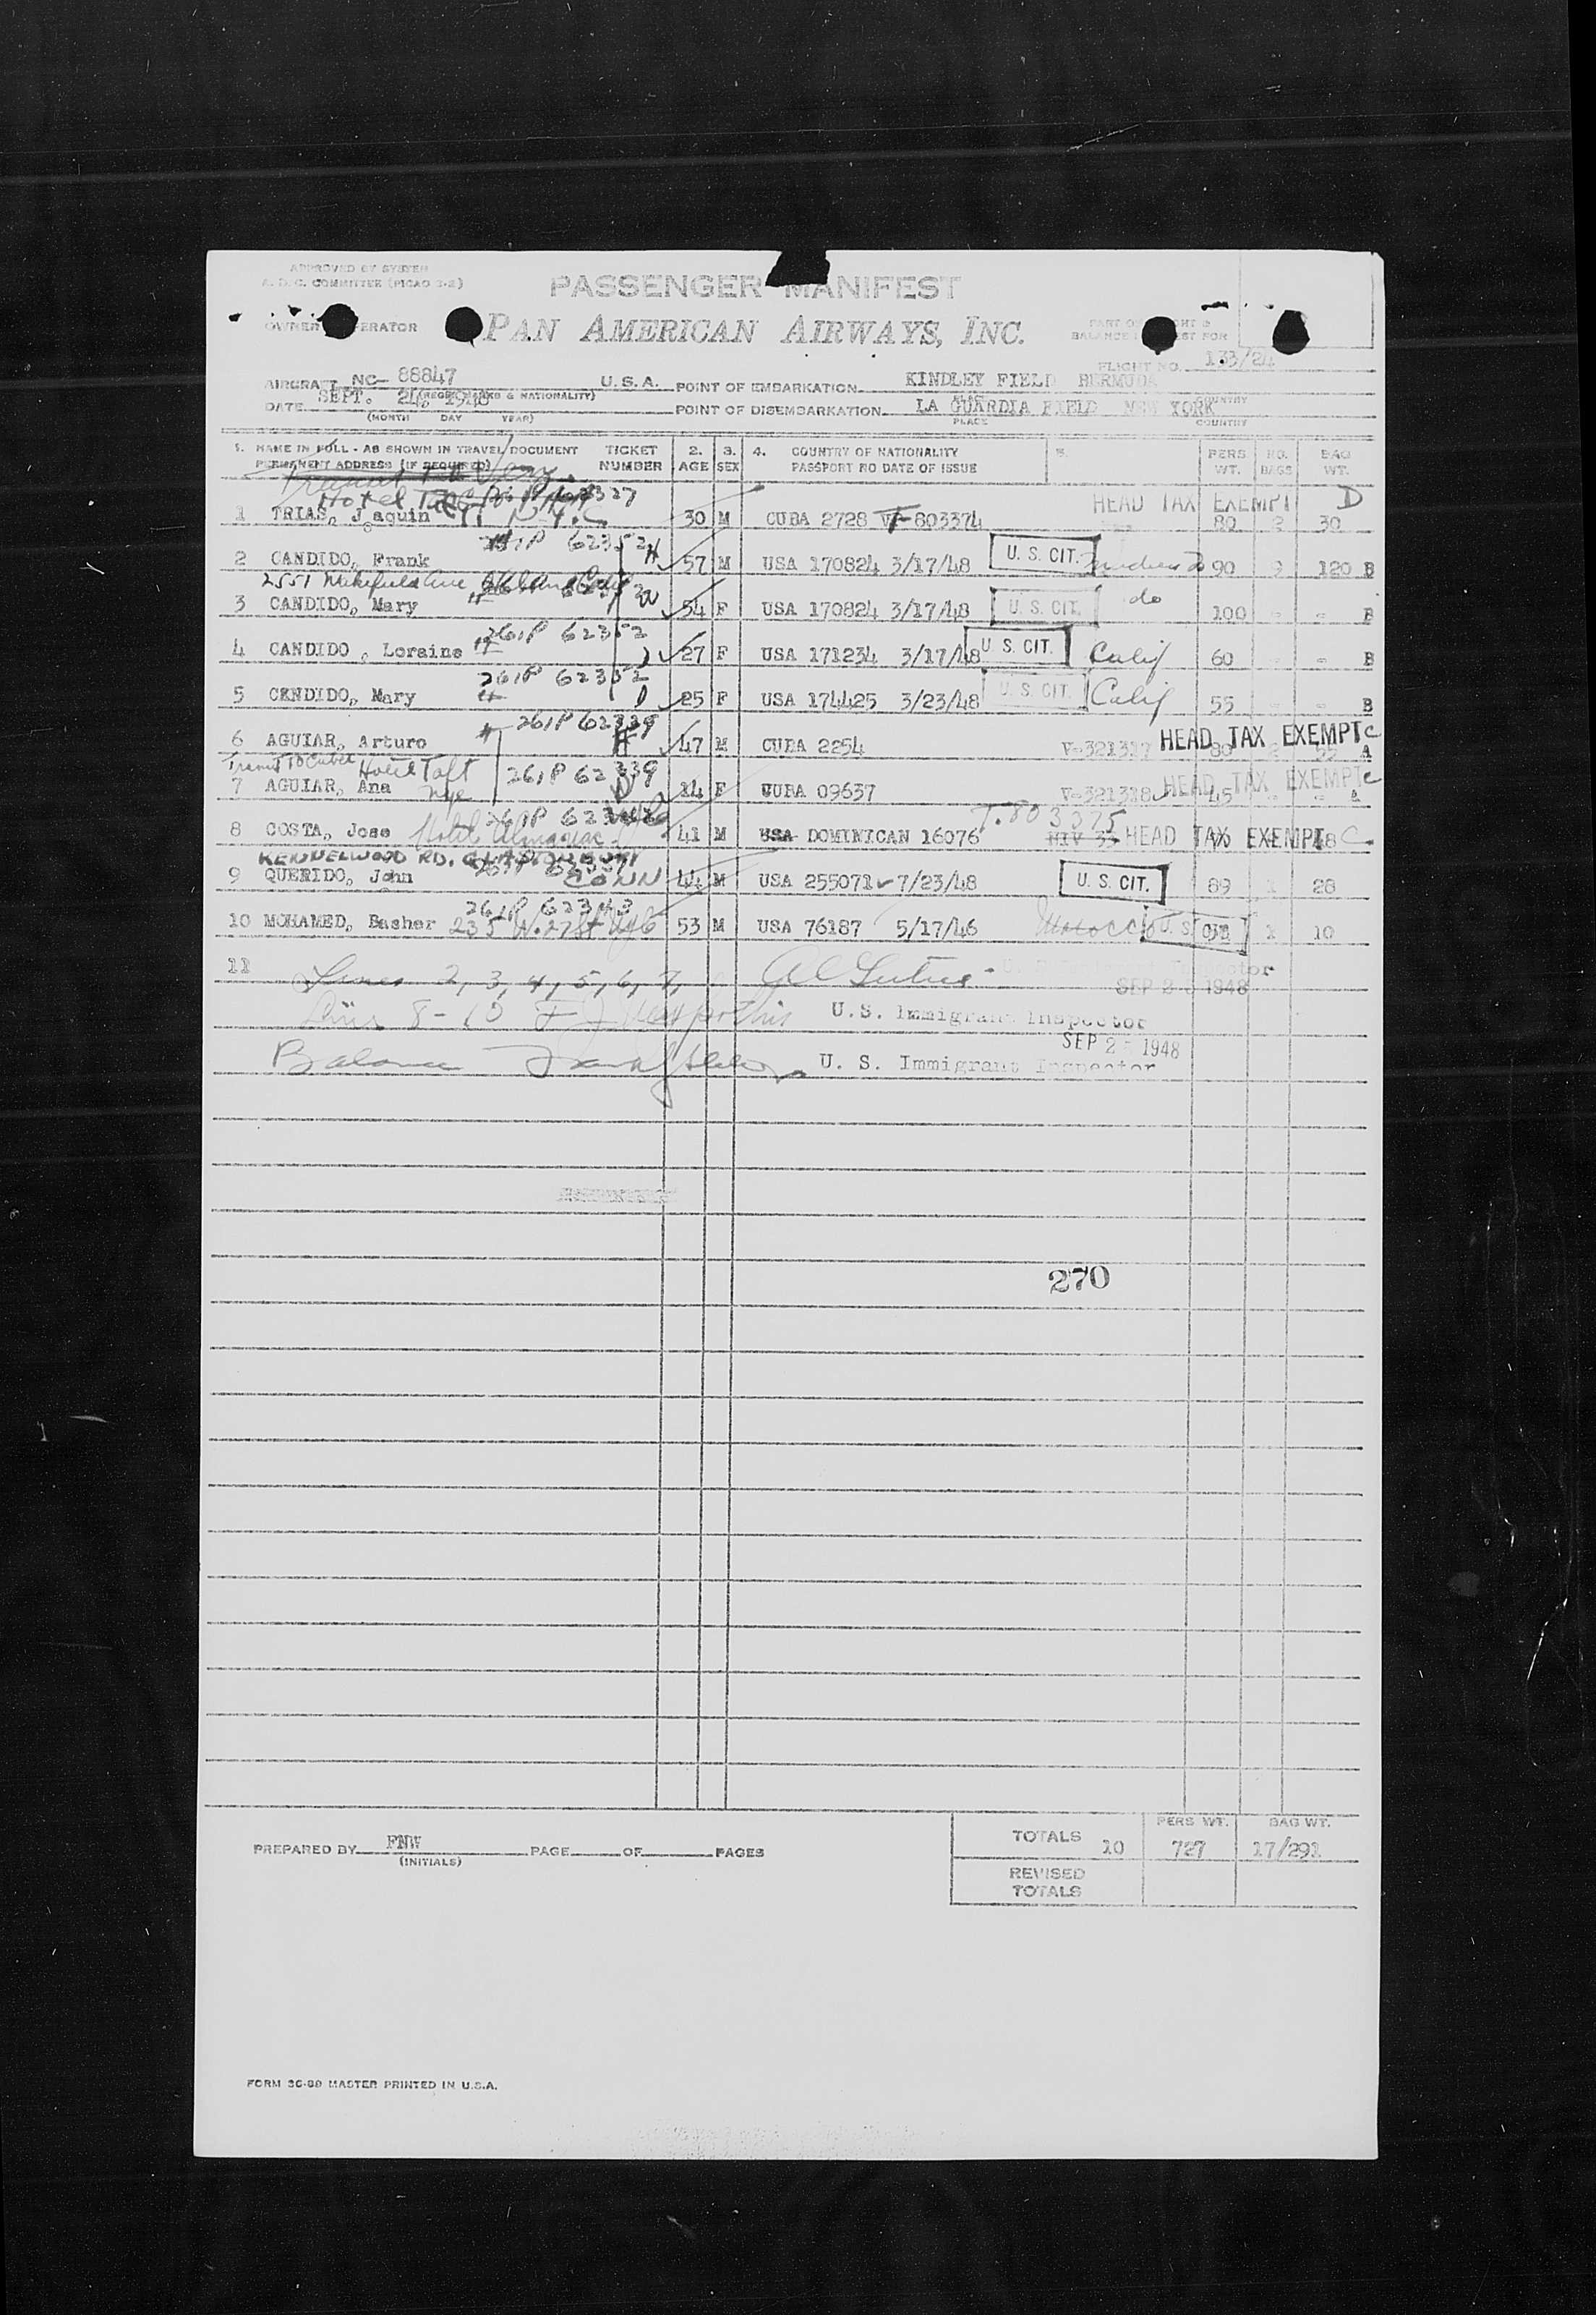 APPROVED BY SYSTEM
A.D.C. COMMITTEE (PICAO 2-2)
PASSENGER MANIFEST
OWNER OPERATOR PAN AMERICAN AIRWAYS, INC.
FLIGHT NO. 133/24
AIRCRAFT NC- 88847 U.S.A. POINT OF EMBARKATION KINDLEY FIELD BERMUDA
(REG. MARKS & NATIONALITY)
DATE SEPT. 24, 1948 POINT OF DISEMBARKATION LA GUARDIA FIELD NEW YORK
(MONTH DAY YEAR) PLACE COUNTRY
1. NAME IN FULL - AS SHOWN IN TRAVEL DOCUMENT TICKET 2. 3. 4. COUNTRY OF NATIONALITY 5. PERS NO. BAG
PERMANENT ADDRESS (IF REQUIRED) NUMBER AGE SEX PASSPORT NO DATE OF ISSUE WT. BAGS WT.
Hotel Taft HEAD TAX EXEMPT D
1 TRIAS, Joaquin N.Y.C 30 M CUBA 2728 T-803374 80 2 30
261P 62352
2 CANDIDO, Frank H 57 M USA 170824 3/17/48 U. S. CIT. 90 9 120 B
2551 Ave, Oakland Calif
3 CANDIDO, Mary W 54 F USA 170824 3/17/48 U. S. CIT. do 100 - - B
261P 62352
4 CANDIDO, Loraine D 27 F USA 171234 3/17/48 U. S. CIT. Calif 60 - - B
261P 62352
5 CENDIDO, Mary D 25 F USA 174425 3/23/48 U. S. CIT. Calif 55 - - B
261P 62339
6 AGUIAR, Arturo 47 M CUBA 2254 V-321317 HEAD TAX EXEMPT C 80 2 55 A
Transit to Cuba Hotel Taft 261P 62339
7 AGUIAR, Ana nyc D 14 F CUBA 09637 V-321318 HEAD TAX EXEMPT C 45 - - A
T.803375
8 COSTA, Jose Hotel Almanac 41 M USA DOMINICAN 16076 NIV 33 HEAD TAX EXEMPT C
KENNELWOOD RD. GLASTONBURY
9 QUERIDO, John CONN 44 M USA 255071 7/23/48 U. S. CIT. 89 1 28
261P 62343
10 MOHAMED, Basher 235 W. 27 St NYC 53 M USA 76187 5/17/46 Morocco U. S. CIT. 1 10
11 Lines 2, 3, 4, 5, 6, 7,
SEP 25 1948
Lines 8-10 U.S. Immigrant Inspector
SEP 25 1948
Balance U. S. Immigrant Inspector
270
PREPARED BY FNW PAGE OF PAGES
(INITIALS)
PERS WT. BAG WT.
TOTALS 10 727 17/291
REVISED
TOTALS
FORM 36-99 MASTER PRINTED IN U.S.A.